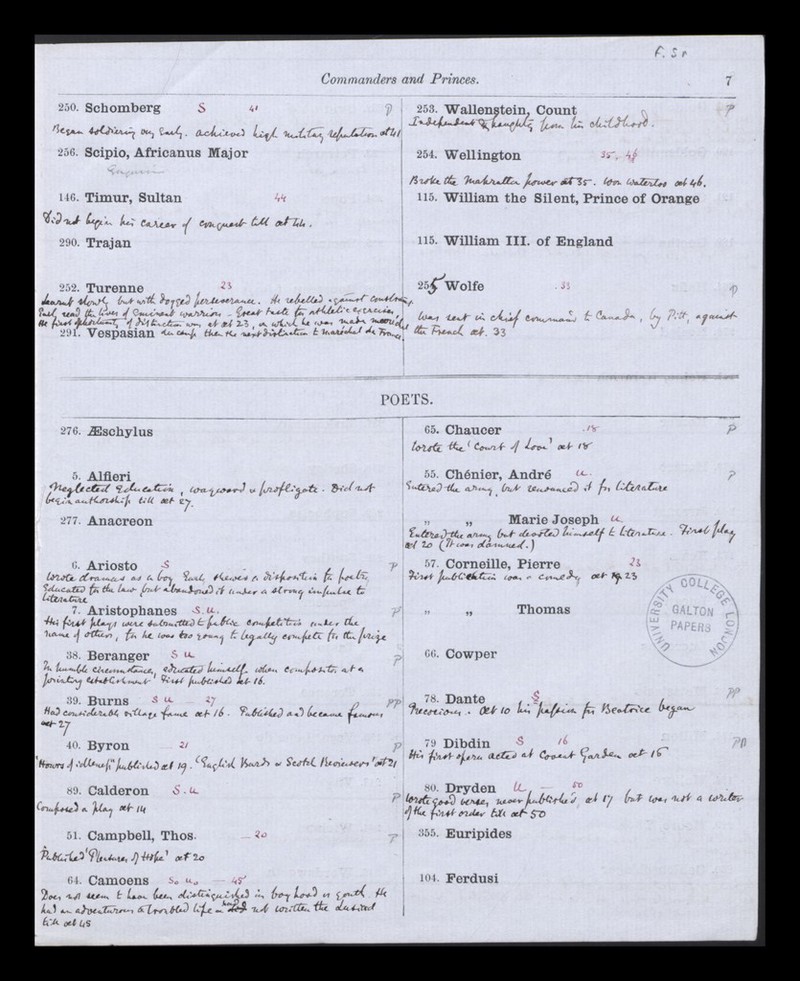 F. Sr
Commanders and Princes.
7
250. Schomberg S 41 P
Began soldiering very early. achieved high military reputation at 41
256. Scipio, Africanus Major
146. Timur, Sultan 44
Did not begin his career of conquest till aet 44.
290. Trajan
252. Turenne 23
Learnt slowly but with dogged perseverance. He rebelled against
Early read the lives of eminent warriors – Great taste for athletic exercises,
He first opportunity of distinction was at aet 23, on which he was made
291. Vespasian de camp then the next distinction to Maréchal de France.
253. Wallenstein, Count P
Independent & haughty from his childhood.
254. Wellington 35 . 46
Broke the Mahratta power at 35. Won Waterloo aet 46.
115. William the Silent, Prince of Orange
115. William III. of England
255 Wolfe . 33 P
Was sent in chief command to Canada, by Pitt, against
the French aet. 33
POETS.
276. Æschylus
5. Alfieri
Neglected education, wayward & profligate. Did not
begin authorship till aet 27.
277. Anacreon
6. Ariosto S P
Wrote dramas as a boy Early shewed a disposition for poetry
Educated for the law but abandoned it under a strong impulse to
literature
7. Aristophanes S.u. P
His first plays were submitted to public competition under the
name of others, for he was too young to legally compete for the prize
38. Beranger S u P
In humble circumstances, educated himself when compositor at a
printing establishment First published aet 16.
39. Burns S u 27 PP
Had considerable village fame aet 16. Published and became famous
aet 27
40. Byron 21 P
'Hours of idleness' published aet 19. 'English Bards & Scotch Reviewers' aet 21
89. Calderon S.u P
Composed a play aet 14
51. Campbell, Thos. – 20 P
Published 'Pleasures of Hope' aet 20
64. Camoens So uo – 45
Does not seem to have been distinguished in boyhood or youth He
had an adventurous & troubled life & had not written the Lusiad
till aet 45
65. Chaucer .18 P
Wrote the 'Court of Love' aet 18
55. Chénier, André u. P
Entered the army, but renounced it for literature
„ „ Marie Joseph u
Entered the army but devoted himself to literature. First play
aet 20 (It was damned.)
57. Corneille, Pierre 23
First publication was a comedy aet 23
„ „ Thomas
66. Cowper
78. Dante S PP
Precocious. Aet 10 his passion for Beatrice began
79 Dibdin S 16 PP
His first opera acted at Covent Garden aet 16
80. Dryden u – 50
Wrote good verses, never published, aet 17 but was not a writer
of the first order till aet 50
355. Euripides
104. Ferdusi
UNIVERSITY COLLEGE LONDON
GALTON
PAPERS